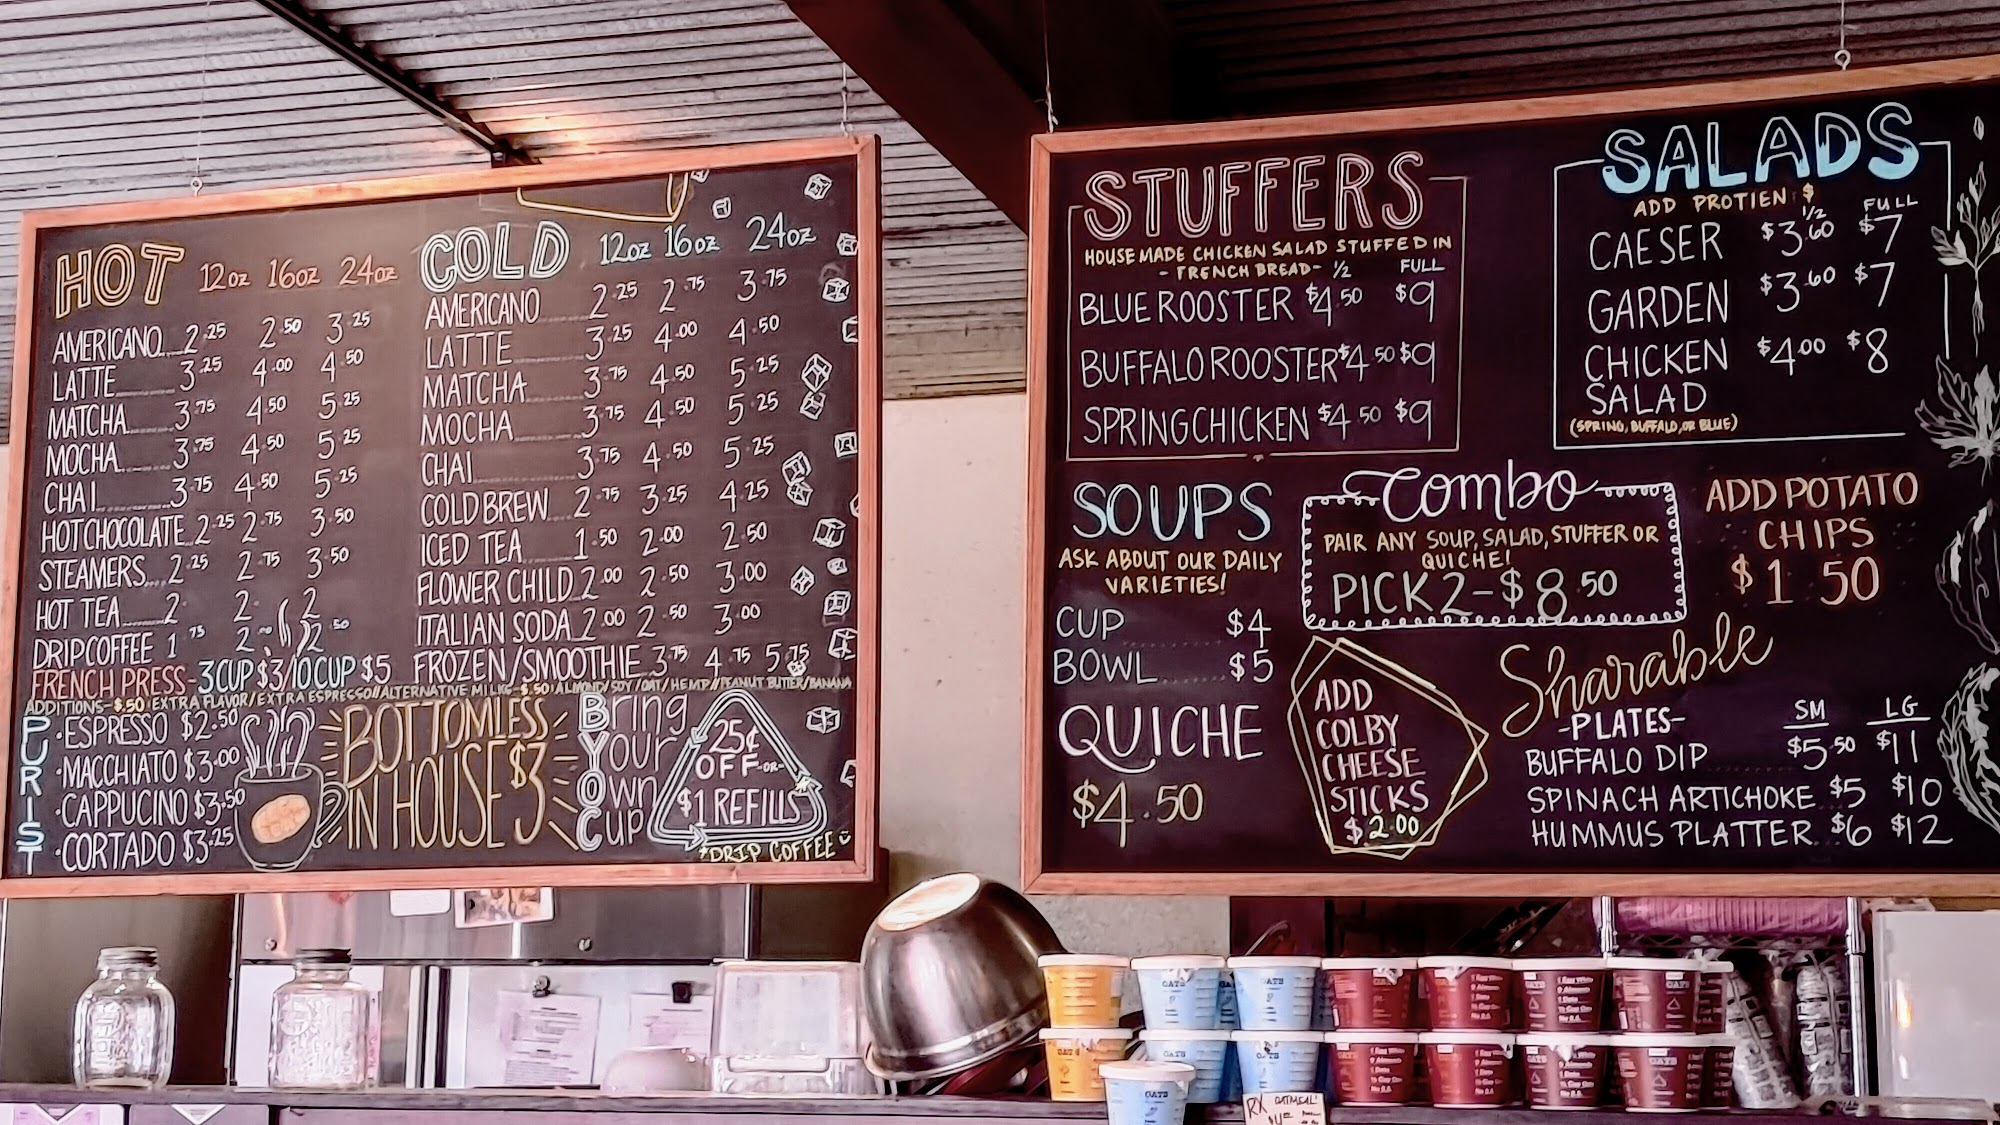 HOT 12oz 16oz 24oz
AMERICANO 2.25 2.50 3.25
LATTE 3.25 4.00 4.50
MATCHA 3.75 4.50 5.25
MOCHA 3.75 4.50 5.25
CHAI 3.75 4.50 5.25
HOT CHOCOLATE 2.25 2.75 3.50
STEAMERS 2.25 2.75 3.50
HOT TEA 2. 2. 2
DRIP COFFEE 1.75 2. 2.50
FRENCH PRESS - 3 CUP $3/10 CUP $5
COLD 12oz 16oz 24oz
AMERICANO 2.25 2.75 3.75
LATTE 3.25 4.00 4.50
MATCHA 3.75 4.50 5.25
MOCHA 3.75 4.50 5.25
CHAI 3.75 4.50 5.25
COLD BREW 2.75 3.25 4.25
ICED TEA 1.50 2.00 2.50
FLOWER CHILD 2.00 2.50 3.00
ITALIAN SODA 2.00 2.50 3.00
FROZEN/SMOOTHIE 3.75 4.75 5.75
ADDITIONS-$.50 EXTRA FLAVOR/EXTRA ESPRESSO//ALTERNATIVE MILK-$.50 ALMOND/SOY/OAT/HEMP//PEANUT BUTTER/BANANA
PURIST
·ESPRESSO $2.50
·MACCHIATO $3.00
·CAPPUCINO $3.50
·CORTADO $3.25
BOTTOMLESS
IN HOUSE $3
Bring
Your
Own
Cup
25¢
OFF -OR-
$1 REFILLS
*DRIP COFFEE
STUFFERS
HOUSE MADE CHICKEN SALAD STUFFED IN
- FRENCH BREAD- 1/2 FULL
BLUE ROOSTER $4.50 $9
BUFFALO ROOSTER $4.50 $9
SPRING CHICKEN $4.50 $9
SALADS
ADD PROTIEN $
1/2 FULL
CAESER $3.60 $7
GARDEN $3.60 $7
CHICKEN $4.00 $8
SALAD
(SPRING, BUFFALO, OR BLUE)
SOUPS
ASK ABOUT OUR DAILY
VARIETIES!
CUP $4
BOWL $5
QUICHE
$4.50
Combo
PAIR ANY SOUP, SALAD, STUFFER OR
QUICHE!
PICK 2-$8.50
ADD POTATO
CHIPS
$1.50
ADD
COLBY
CHEESE
STICKS
$2.00
Sharable
-PLATES- SM LG
BUFFALO DIP $5.50 $11
SPINACH ARTICHOKE $5 $10
HUMMUS PLATTER $6 $12
OATS
OATS
OATS
RX OATMEAL!